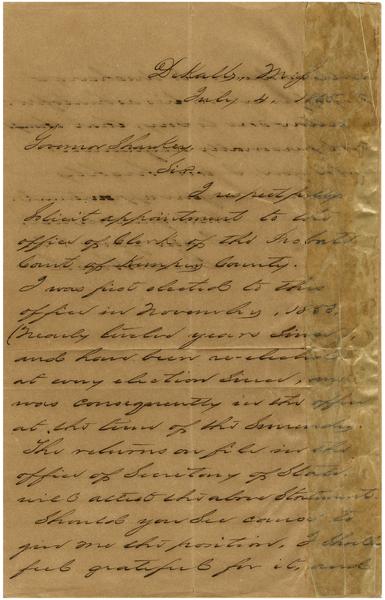 DeKalb, Miss
July 4, 1865
Governor Sharkey
Sir.
I respectfully
Solicit appointment to the
office of Clerk of the Probate
Court of Kemper County.
I was first elected to this
office in November, 1853
(Nearly twelve years Since),
and have been re-elected
at every election Since, and
was consequently in the office
at the time of the Surrender.
The returns on file in the
office of Secretary of State
will attest the above Statement.
Should you See cause to
give me the position, I should
feel grateful for it, and